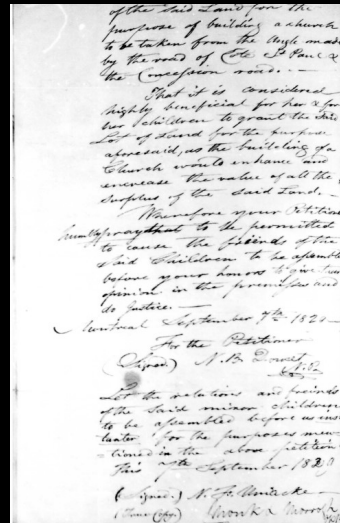 of the said Land for the
purpose of building a church
to be taken from the Angle made
by the road of Cote St Paul &
the Concession road. —
That it is considered
highly beneficial for her & for
her children to grant the said
Lot of Land for the purpose
aforesaid, as the building of a
Church would enhance and
encrease the value of all the
surplus of the said Land. —
Wherefore your Petitioner
humbly prays that to be permitted
to cause the friends of the
said Children to be assembled
before your honors to give their
opinion in the premises and
do Justice. —
Montreal September 7th 182
For the Petitioner
(Signed) N. B. Doucet
N.P.
Let the relations and freinds
of the said minor children
to be assembled before us ins
tanter for the purposes men
tioned in the above petition
This 7th September 182
(Signed.) N. F. Uniacke
(True Copy.) Monk & Morrogh